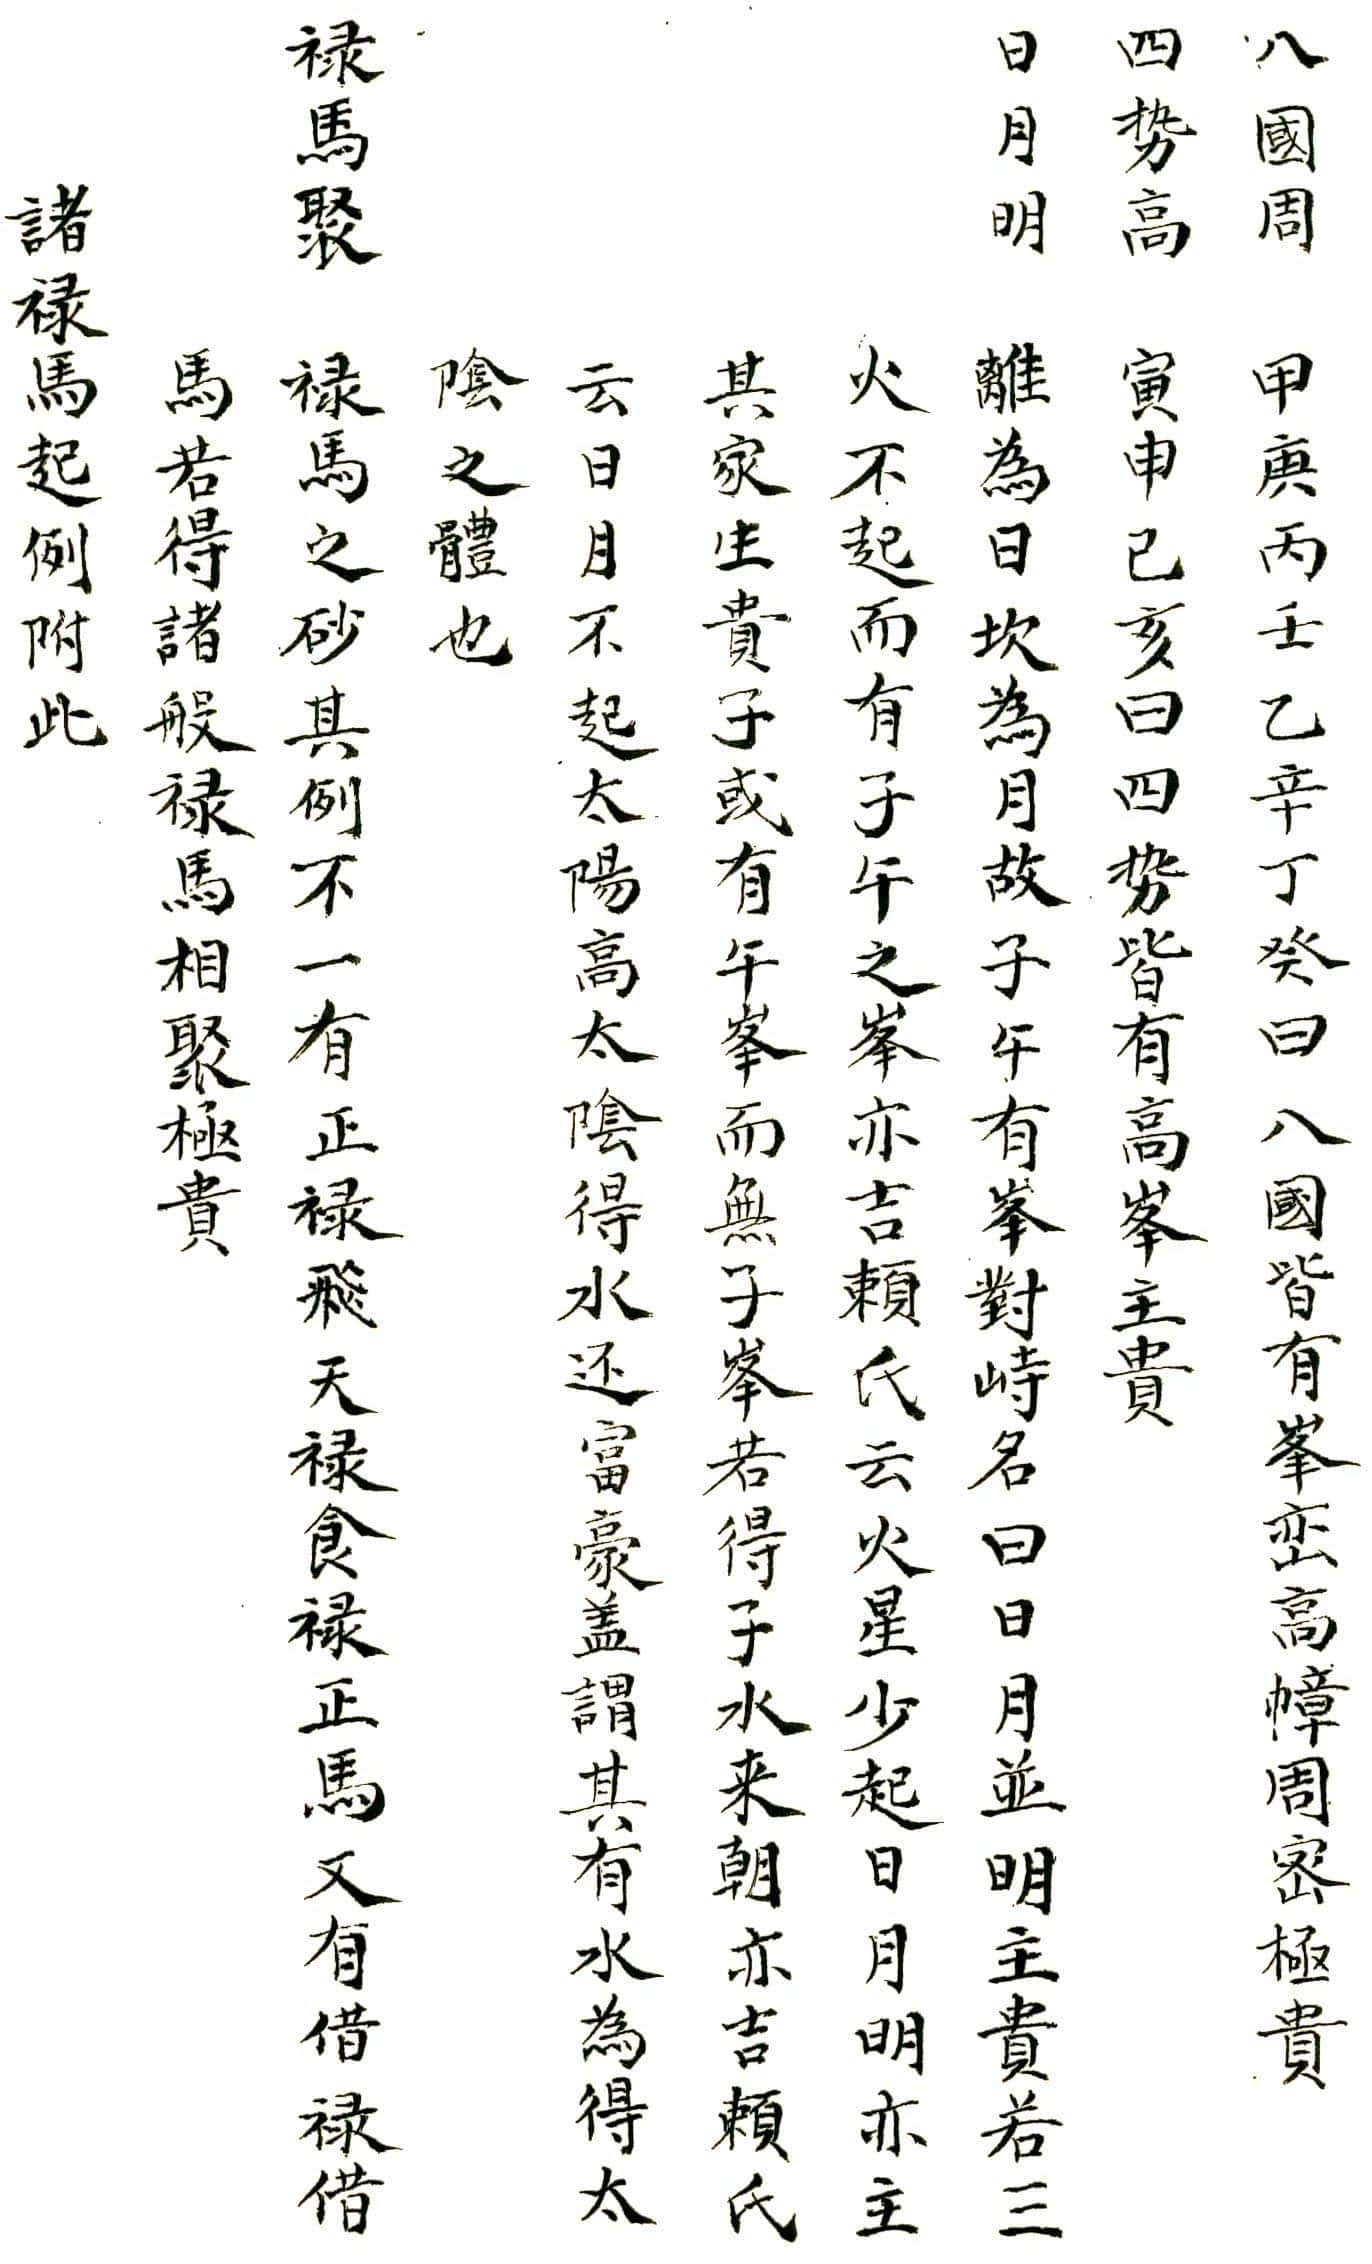 八國周　甲庚丙壬乙辛丁癸曰八國皆有峯峦高幛周密極貴
四势高　寅申巳亥曰四势皆有高峯主貴
日月明　離為日坎為月故子午有峯對峙名曰日月並明主貴若三
火不起而有子午之峯亦吉頼氏云火星少起日月明亦主
其家生貴子或有午峯而無子峯若得子水来朝亦吉頼氏
云日月不起太陽高太陰得水还富豪盖謂其有水為得太
陰之體也
禄馬聚　禄馬之砂其例不一有正禄飛天禄食禄正馬又有借禄借
馬若得諸般禄馬相聚極貴
諸禄馬起例附此